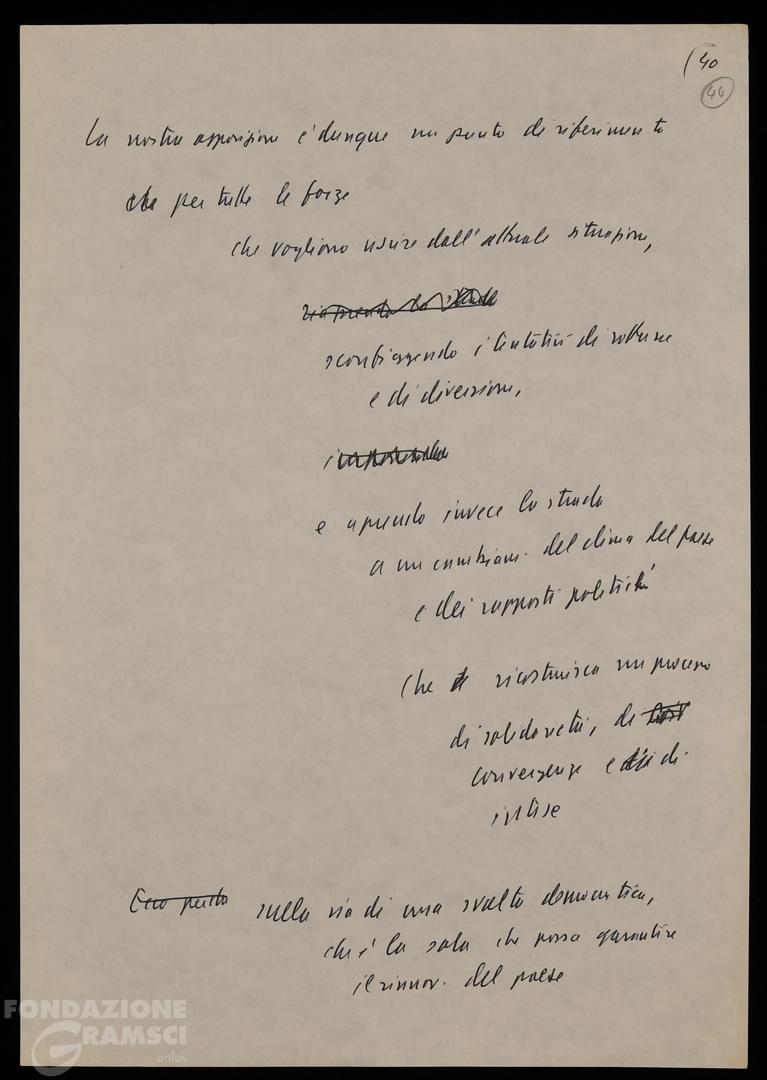 (40
44
La nostra opposizione è dunque un punto di riferimento
che per tutte le forze
che vogliono uscire dall'attuale situazione,
sconfiggendo i tentativi di rotture
e di diversione,
e aprendo invece la strada
a un cambiam. del clima del paese
e dei rapporti politici
che ricostruisca un processo
di solidarietà, di
convergenze e di
intese
Ecco perché sulla via di una svolta democratica,
che è la sola che possa garantire
il rinnov. del paese
FONDAZIONE
GRAMSCI
onlus